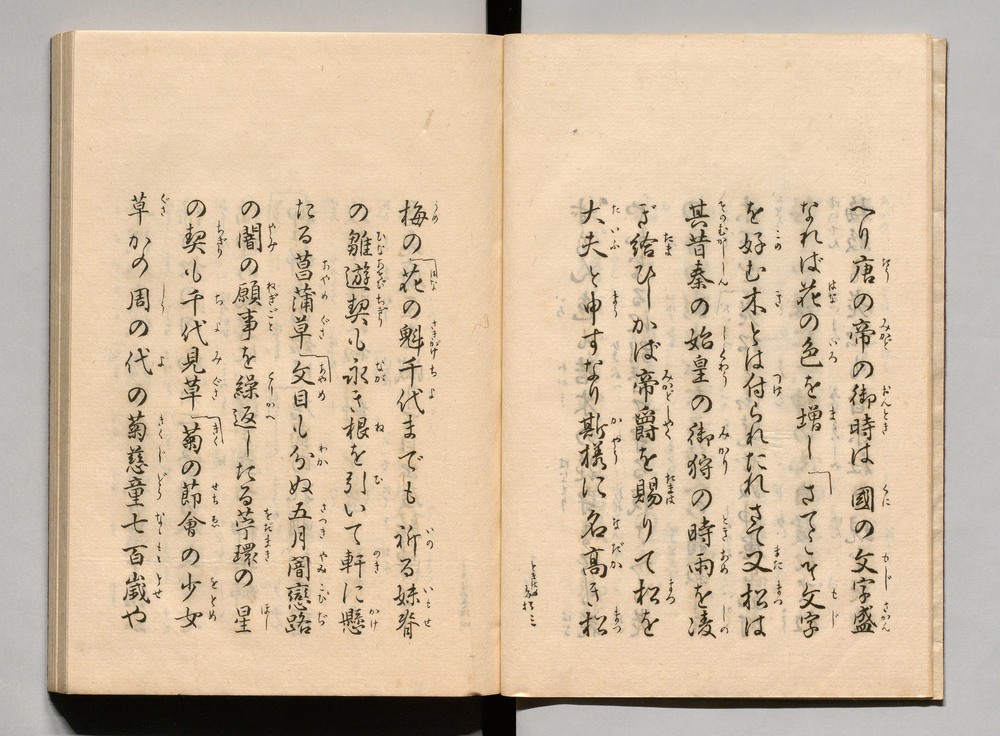 へり唐の帝の御時は國の文字盛
なれば花の色を増しさてこそ文字
を好む木とは付られたれさて又松は
其昔秦の始皇の御狩の時雨を凌
ぎ給ひしかば帝爵を賜りて松を
大夫と申すなり斯様に名高き松
梅の花の魁千代までも祈る妹脊
の雛遊契も永き根を引いて軒に懸
たる菖蒲草文目も分ぬ五月闇戀路
の闇の願事を繰返したる苧環の星
の契も千代見草菊の節會の少女
草かの周の代の菊慈童七百歳や